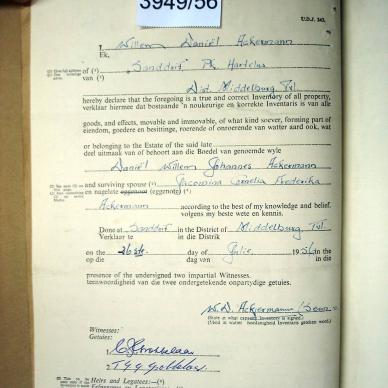 3949/56
U.D.J. 243.
I, Willem Daniël Ackermann
Ek,
of (¹) Sanddrif Pk Hartelus
van (¹)
Dist. Middelburg Tvl
hereby declare that the foregoing is a true and correct Inventory of all property,
verklaar hiermee dat bostaande 'n noukeurige en korrekte Inventaris is van alle
goods, and effects, movable and immovable, of what kind soever, forming part of
eiendom, goedere en besittinge, roerende of onroerende van watter aard ook, wat
or belonging to the Estate of the said late
deel uitmaak van of behoort aan die Boedel van genoemde wyle
Daniël Willem Johannes Ackermann
and surviving spouse (²) Jacomina Cornelia Frederika
en nagelate eggenoot (eggenote) (²)
Ackermann according to the best of my knowledge and belief.
volgens my beste wete en kennis.
Done at Sanddrif in the District of Middelburg Tvl.
Verklaar te in die Distrik
on the 26ste day of Julie 1956 in the
op die dag van in die
presence of the undersigned two impartial Witnesses.
teenwoordigheid van die twee ondergetekende onpartydige getuies.
W.D. Ackermann / Seun
(State in what capacity Inventory is signed.)
(Meld in watter hoedanigheid Inventaris geteken word.)
Witnesses:
Getuies:
1.
2.
Heirs and Legatees:—(³)